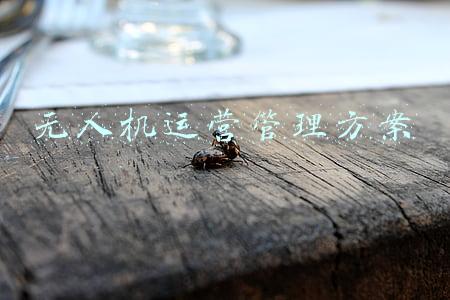 无人机运营管理方案